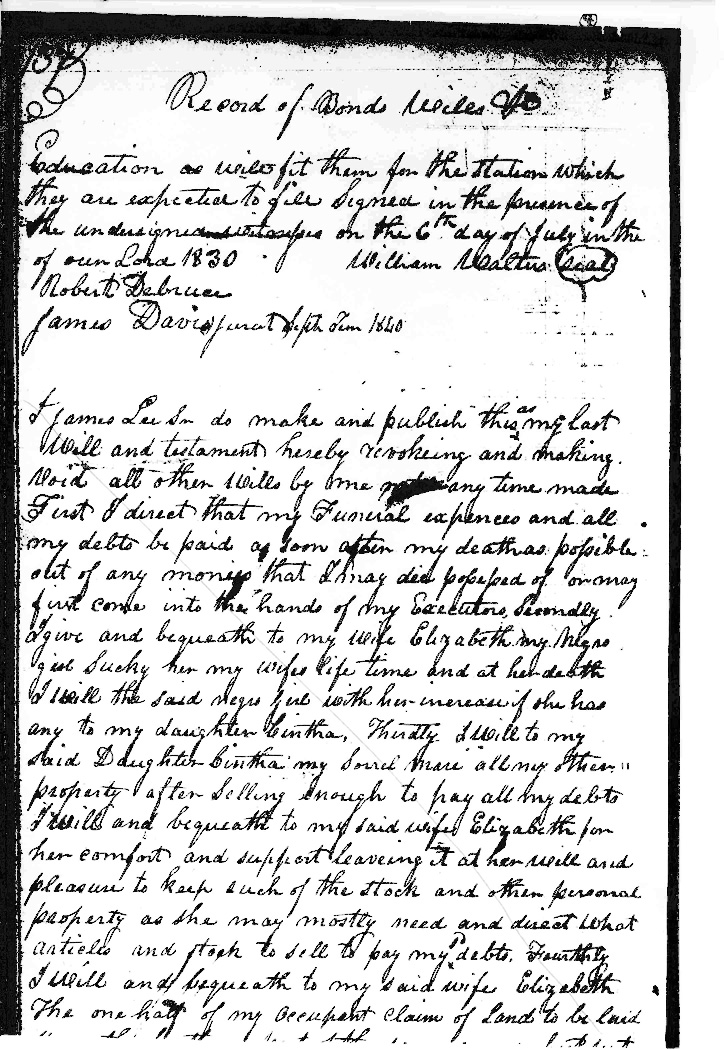 Record of Bonds Wills &c
Education as will fit them for the station which
they are expected to fill Signed in the presence of
the undersigned witnesses on the 6th day of July in the
of our Lord 1830 William Walters seal
Robert Debruce
James Davis jurat Septr Term 1840
I James Lee Sr do make and publish this as my last
Will and testament hereby revokeing and making
Void all other Wills by me any time made
First I direct that my Funeral expences and all
my debts be paid as soon after my death as possible
out of any monies that I may die possessed of or may
first come into the hands of my Executors, Secondly
I give and bequeath to my wife Elizabeth my Negro
girl Sucky her my wifes life time and at her death
I Will the said negro girl with her increase if she has
any to my daughter Cintha, Thirdly I Will to my
said Daughter Cintha my Sorrel mare all my other
property after Selling enough to pay all my debts
I Will and bequeath to my said wife Elizabeth for
her comfort and support leaveing it at her will and
pleasure to keep such of the stock and other personal
property as she may mostly need and direct what
articles and stock to sell to pay my debts. Fourthly
I Will and bequeath to my said wife Elizabeth
The one half of my occupant claim of Land to be laid